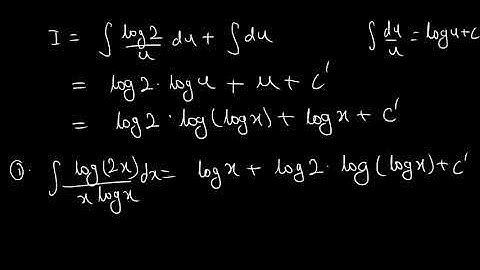 I = ∫ log2/u du + ∫ du    ∫ du/u = log u + c
= log2 · log u + u + c'
= log2 · log(log x) + log x + c'
① · ∫ log(2x)/(x log x) dx = log x + log2 · log(log x) + c'